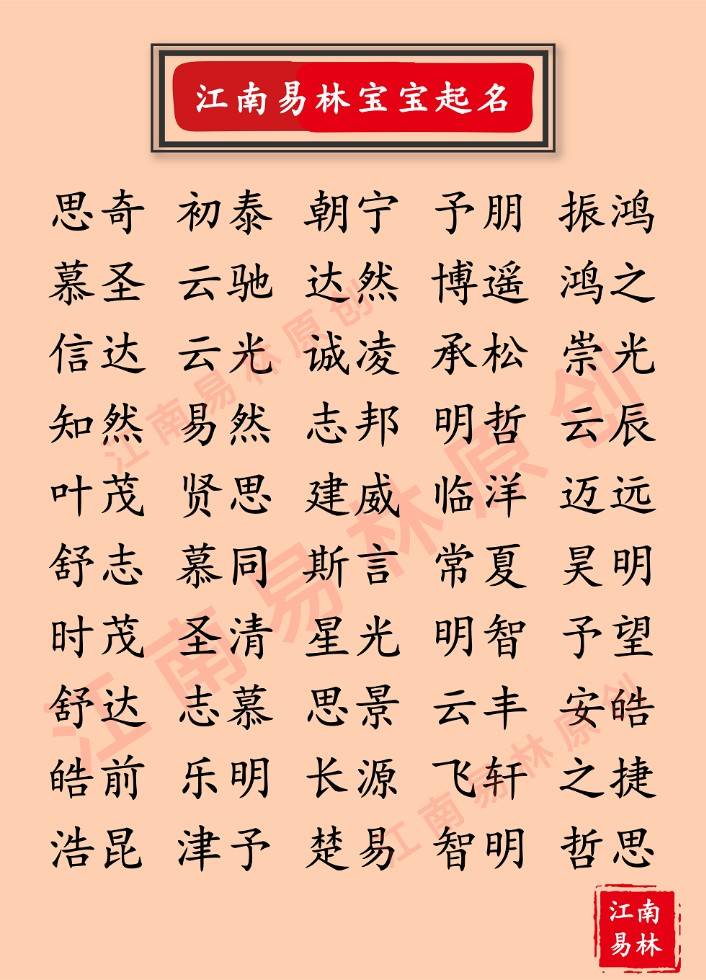 江南易林宝宝起名
思奇 初泰 朝宁 予朋 振鸿
慕圣 云驰 达然 博遥 鸿之
信达 云光 诚凌 承松 崇光
知然 易然 志邦 明哲 云辰
叶茂 贤思 建威 临洋 迈远
舒志 慕同 斯言 常夏 昊明
时茂 圣清 星光 明智 予望
舒达 志慕 思景 云丰 安皓
皓前 乐明 长源 飞轩 之捷
浩昆 津予 楚易 智明 哲思
江南易林原创
江南易林原创
江南易林原创
江南
易林